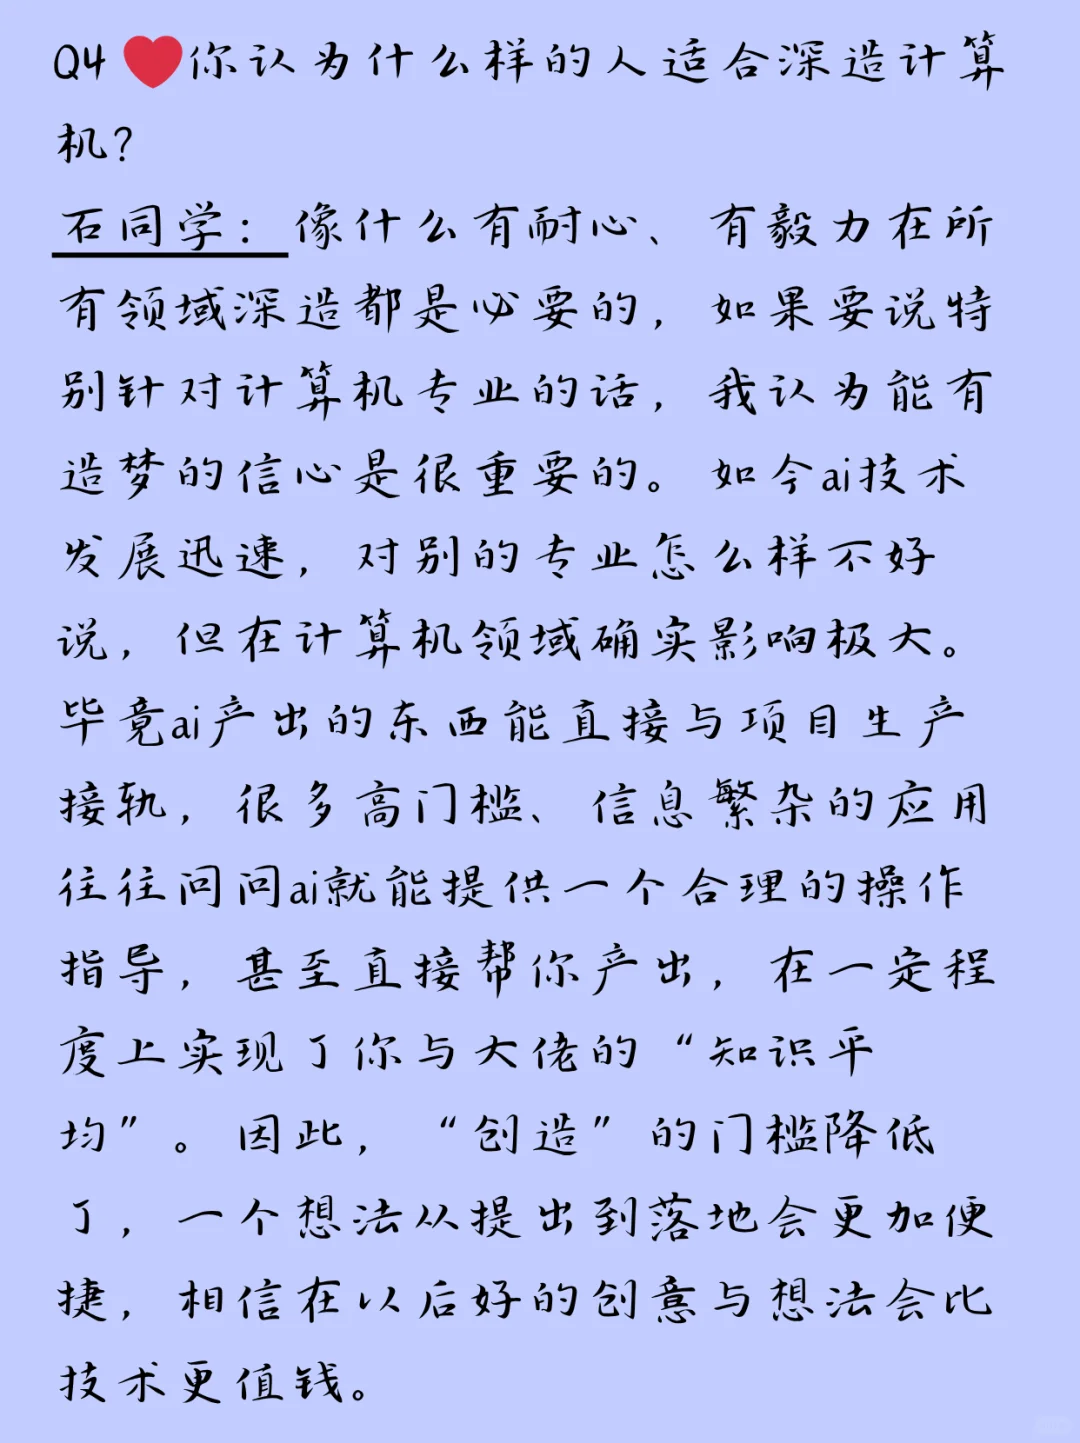 Q4❤️你认为什么样的人适合深造计算
机?
石同学：像什么有耐心、有毅力在所
有领域深造都是必要的，如果要说特
别针对计算机专业的话，我认为能有
造梦的信心是很重要的。如今ai技术
发展迅速，对别的专业怎么样不好
说，但在计算机领域确实影响极大。
毕竟ai产出的东西能直接与项目生产
接轨，很多高门槛、信息繁杂的应用
往往问问ai就能提供一个合理的操作
指导，甚至直接帮你产出，在一定程
度上实现了你与大佬的“知识平
均”。因此，“创造”的门槛降低
了，一个想法从提出到落地会更加便
捷，相信在以后好的创意与想法会比
技术更值钱。